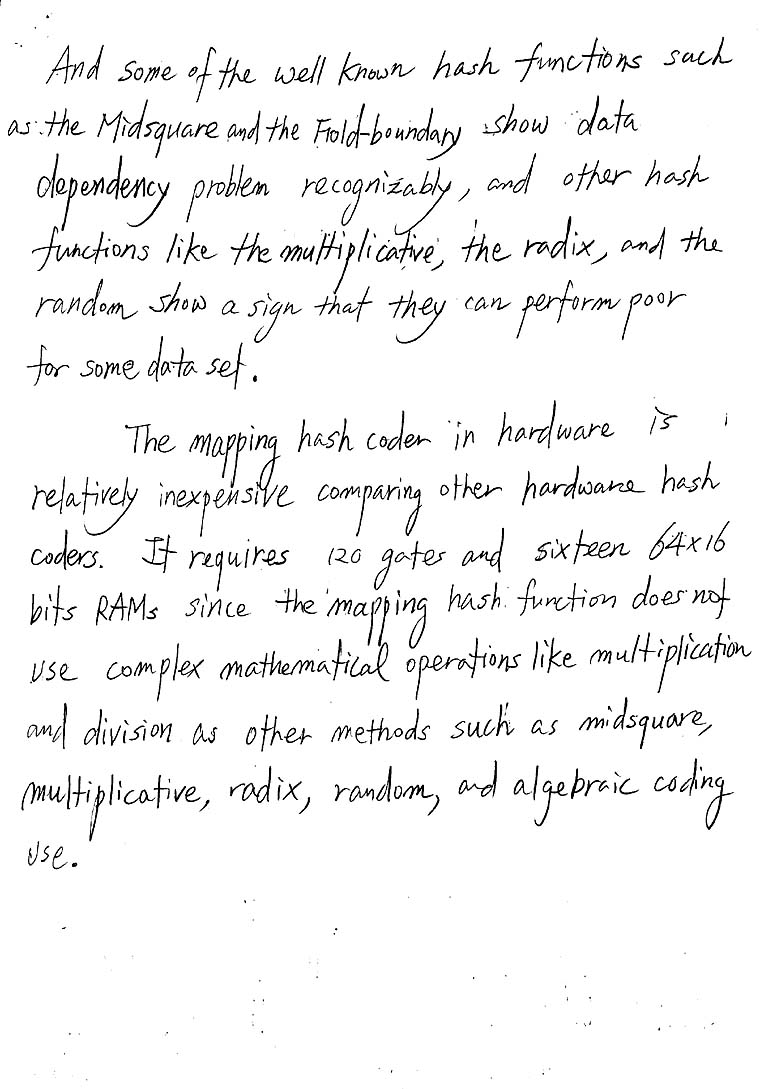 And some of the well known hash functions such
as the Midsquare and the Fold-boundary show data
dependency problem recognizably, and other hash
functions like the multiplicative, the radix, and the
random show a sign that they can perform poor
for some data set.
The mapping hash coder in hardware is
relatively inexpensive comparing other hardware hash
coders. It requires 120 gates and sixteen 64x16
bits RAMs since the mapping hash function does not
use complex mathematical operations like multiplication
and division as other methods such as midsquare,
multiplicative, radix, random, and algebraic coding
use.